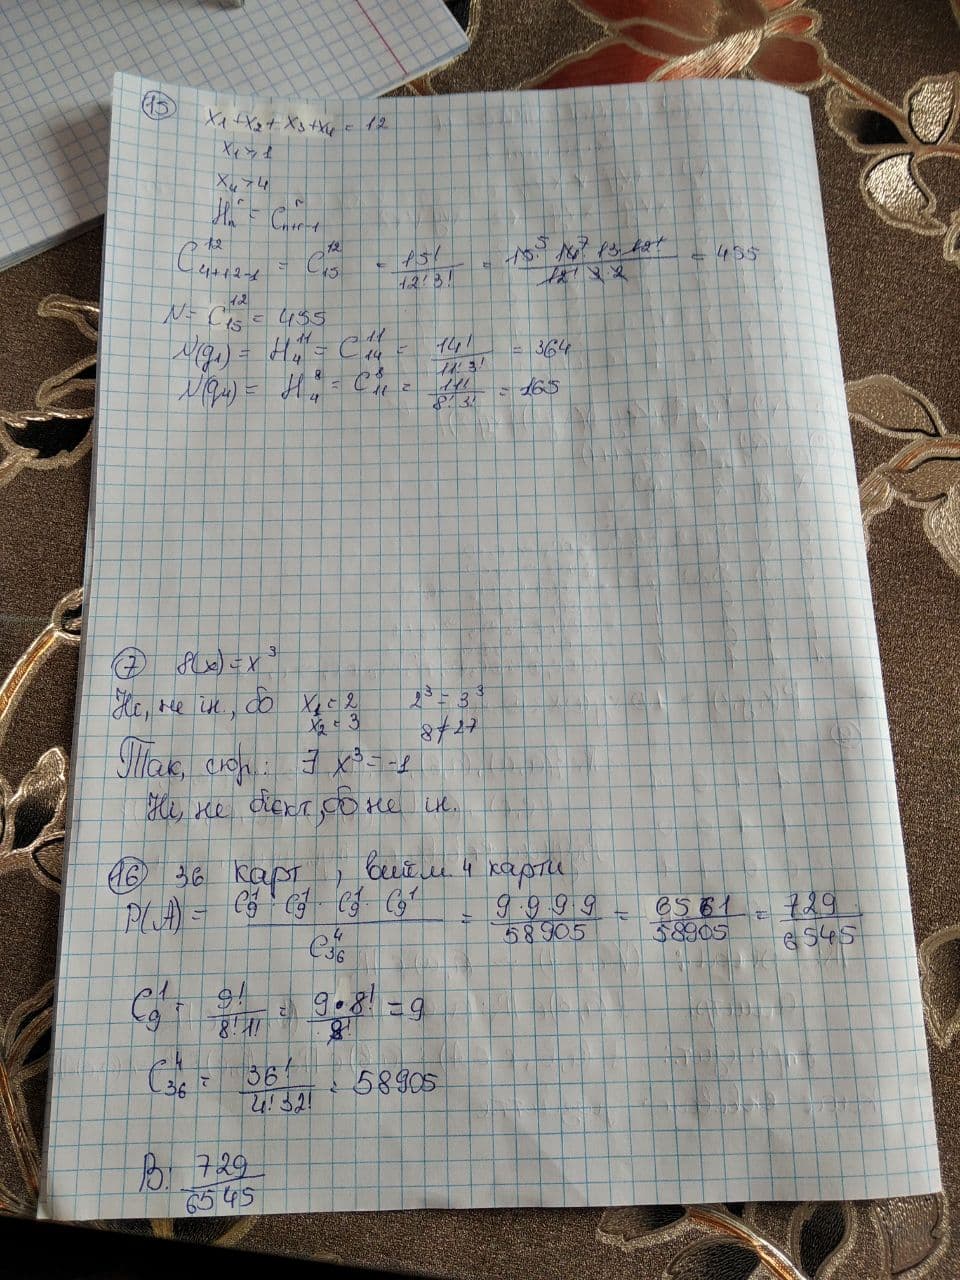 15
x₁+x₂+x₃+x₄=12
x₁≥1
x₄>4
Hₙʳ = Cₙ₊ᵣ₋₁ʳ
C₄₊₁₂₋₁¹² = C₁₅¹² = 15!/12!3! = 15·14·13·12!/12! 3 2 = 455
N = C₁₅¹² = 455
N(q₁) = H₄¹¹ = C₁₄¹¹ = 14!/11!3! = 364
N(q₄) = H₄⁸ = C₁₁⁸ = 11!/8!3! = 165
7 f(x)=x³
Ні, не ін., бо x₁=2 2³=3³
x₂=3 8≠27
Так, сюр.: ∃ x³=-1
Ні, не бієкт, бо не ін.
16 36 карт, 4 карти
P(A) = C₉¹·C₉¹·C₉¹·C₉¹/C₃₆⁴ = 9·9·9·9/58905 = 6561/58905 = 729/6545
C₉¹ = 9!/8!1! = 9·8!/8! = 9
C₃₆⁴ = 36!/4!32! = 58905
В: 729/6545